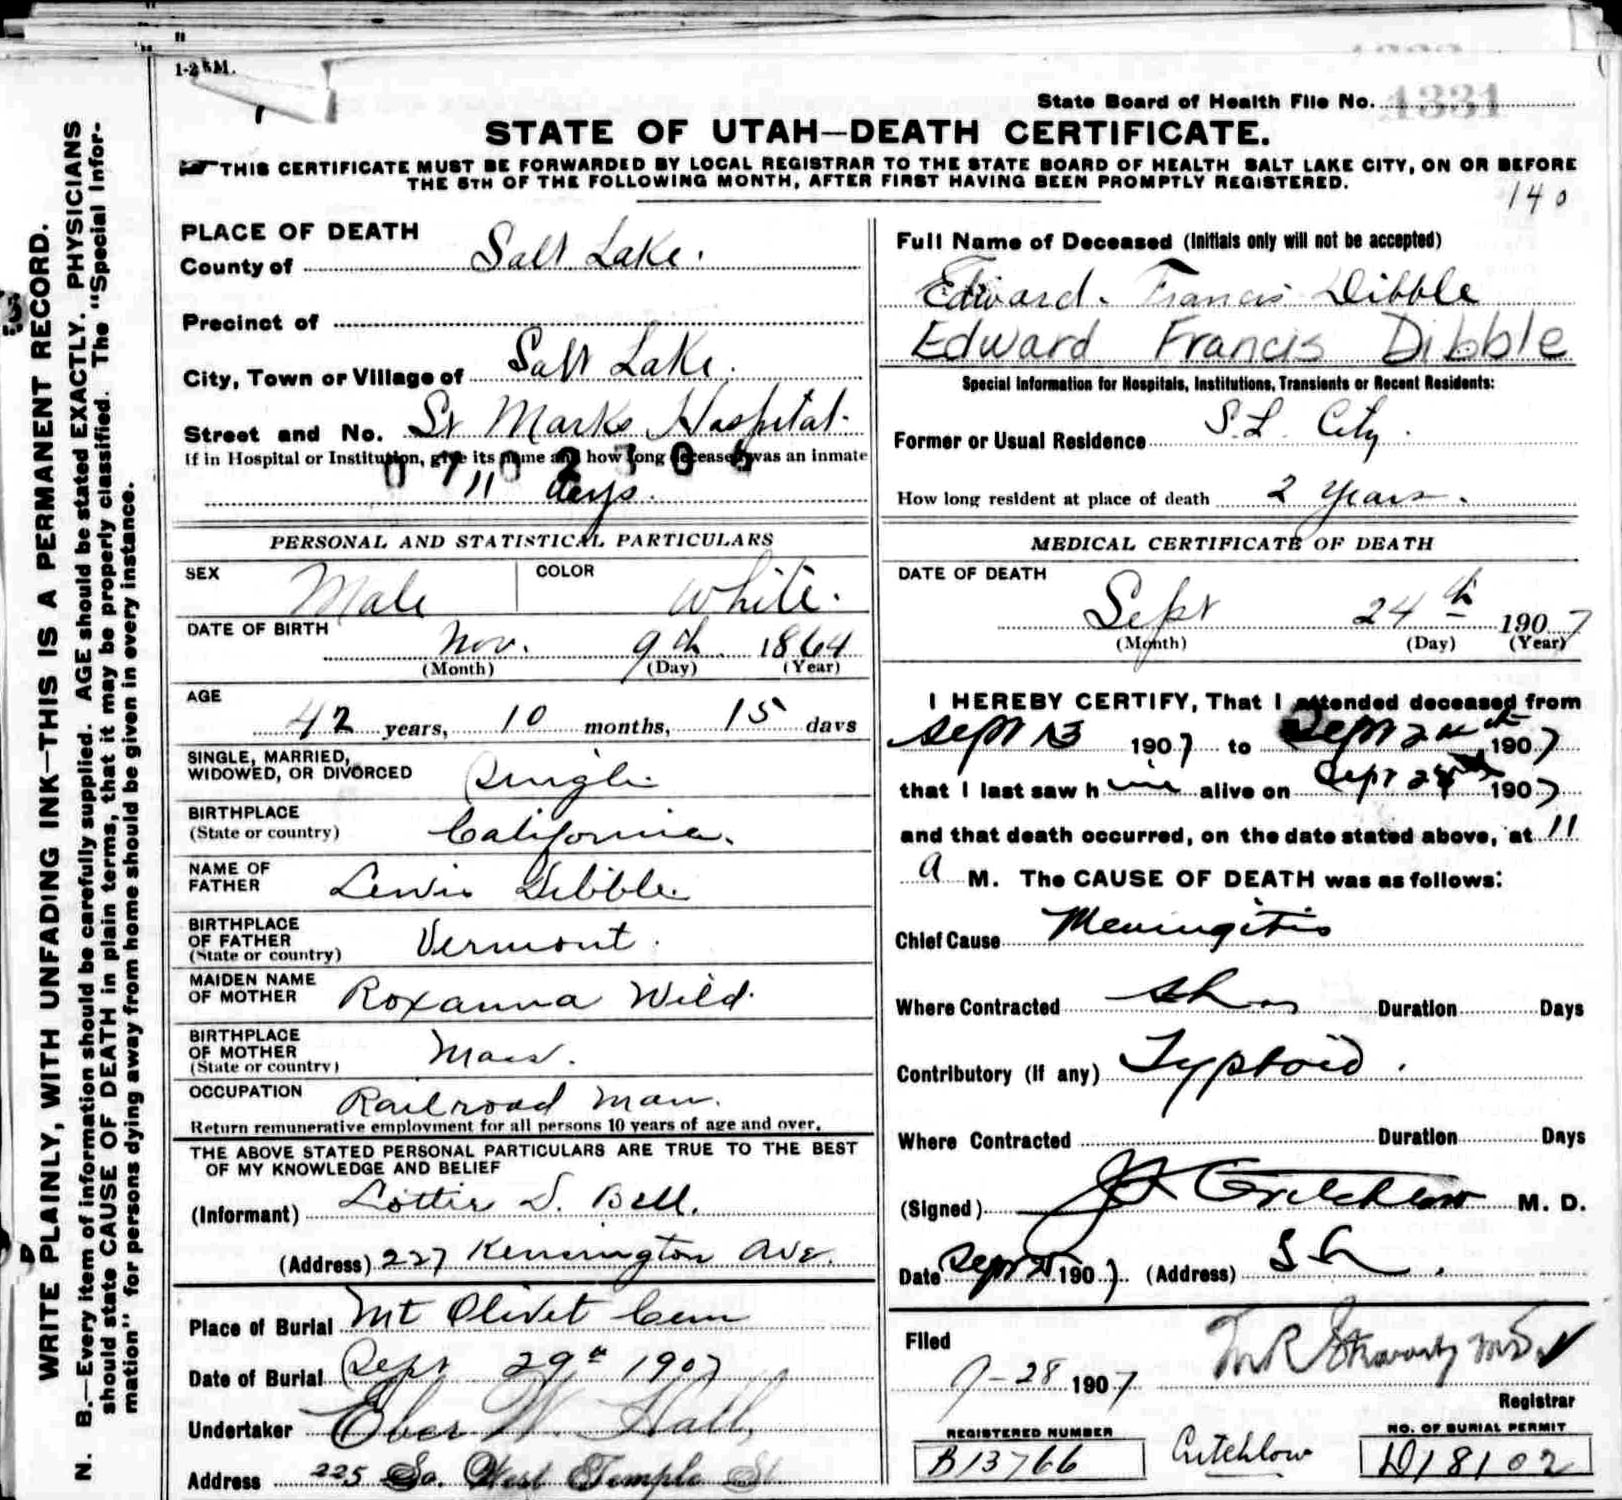 1-25M.
State Board of Health File No. 1331
STATE OF UTAH—DEATH CERTIFICATE.
THIS CERTIFICATE MUST BE FORWARDED BY LOCAL REGISTRAR TO THE STATE BOARD OF HEALTH SALT LAKE CITY, ON OR BEFORE
THE 5TH OF THE FOLLOWING MONTH, AFTER FIRST HAVING BEEN PROMPTLY REGISTERED.
140
WRITE PLAINLY, WITH UNFADING INK—THIS IS A PERMANENT RECORD.
N. B.—Every item of information should be carefully supplied. AGE should be stated EXACTLY. PHYSICIANS
should state CAUSE OF DEATH in plain terms, that it may be properly classified. The "Special Infor-
mation" for persons dying away from home should be given in every instance.
PLACE OF DEATH
County of Salt Lake.
Precinct of
City, Town or Village of Salt Lake.
Street and No. St Marks Hospital.
If in Hospital or Institution, give its name and how long deceased was an inmate
11 days.
PERSONAL AND STATISTICAL PARTICULARS
SEX Male COLOR White.
DATE OF BIRTH Nov. 9th 1864
(Month) (Day) (Year)
AGE
42 years, 10 months, 15 days
SINGLE, MARRIED,
WIDOWED, OR DIVORCED Single
BIRTHPLACE
(State or country) California.
NAME OF
FATHER Lewis Dibble.
BIRTHPLACE
OF FATHER
(State or country) Vermont.
MAIDEN NAME
OF MOTHER Roxanna Wild.
BIRTHPLACE
OF MOTHER
(State or country) Mass.
OCCUPATION Railroad Man.
Return remunerative employment for all persons 10 years of age and over.
THE ABOVE STATED PERSONAL PARTICULARS ARE TRUE TO THE BEST
OF MY KNOWLEDGE AND BELIEF
(Informant) Lottie D. Bell.
(Address) 227 Kensington Ave.
Place of Burial Mt Olivet Cem
Date of Burial Sept 29th 1907
Undertaker Eber W. Hall,
Address 225 So. West Temple St
Full Name of Deceased (Initials only will not be accepted)
Edward. Francis Dibble
Edward Francis Dibble
Special Information for Hospitals, Institutions, Transients or Recent Residents:
Former or Usual Residence S.L. City.
How long resident at place of death 2 Years.
MEDICAL CERTIFICATE OF DEATH
DATE OF DEATH
Sept 24th 1907
(Month) (Day) (Year)
I HEREBY CERTIFY, That I attended deceased from
Sept 13 1907 to Sept 24th 1907
that I last saw him alive on Sept 24th 1907
and that death occurred, on the date stated above, at 11
A M. The CAUSE OF DEATH was as follows:
Chief Cause Meningitis
Where Contracted Duration Days
Contributory (if any) Typhoid.
Where Contracted Duration Days
(Signed) Critchlow M. D.
Date Sept 1907. (Address) S L.
Filed
9-28 1907
Registrar
REGISTERED NUMBER
B13766
Critchlow
NO. OF BURIAL PERMIT
D18102